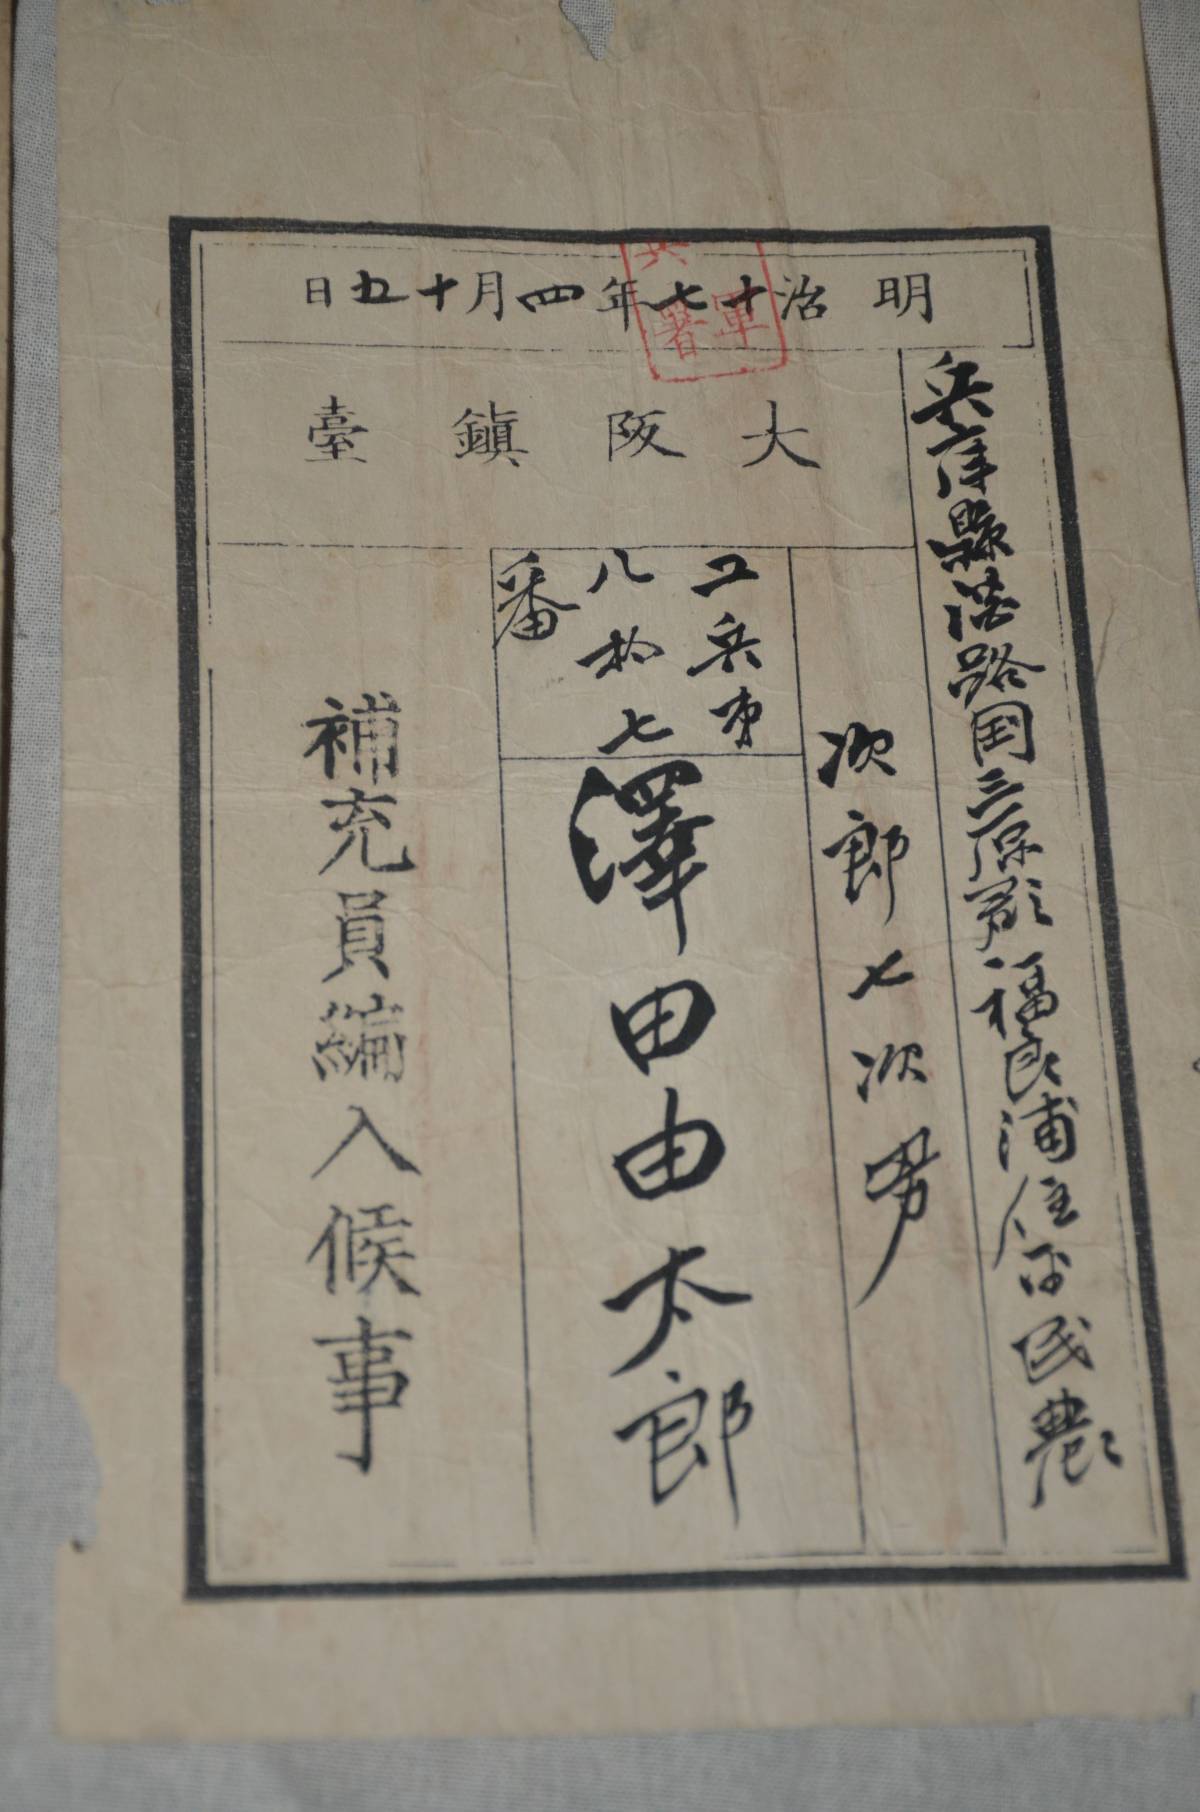 明治十七年四月十五日
大阪鎮臺
兵庫縣淡路国三原郡福良浦住平民農
次郎七次男
工兵第
八拾七
番
澤田由太郎
補充員編入候事
兵
軍
署